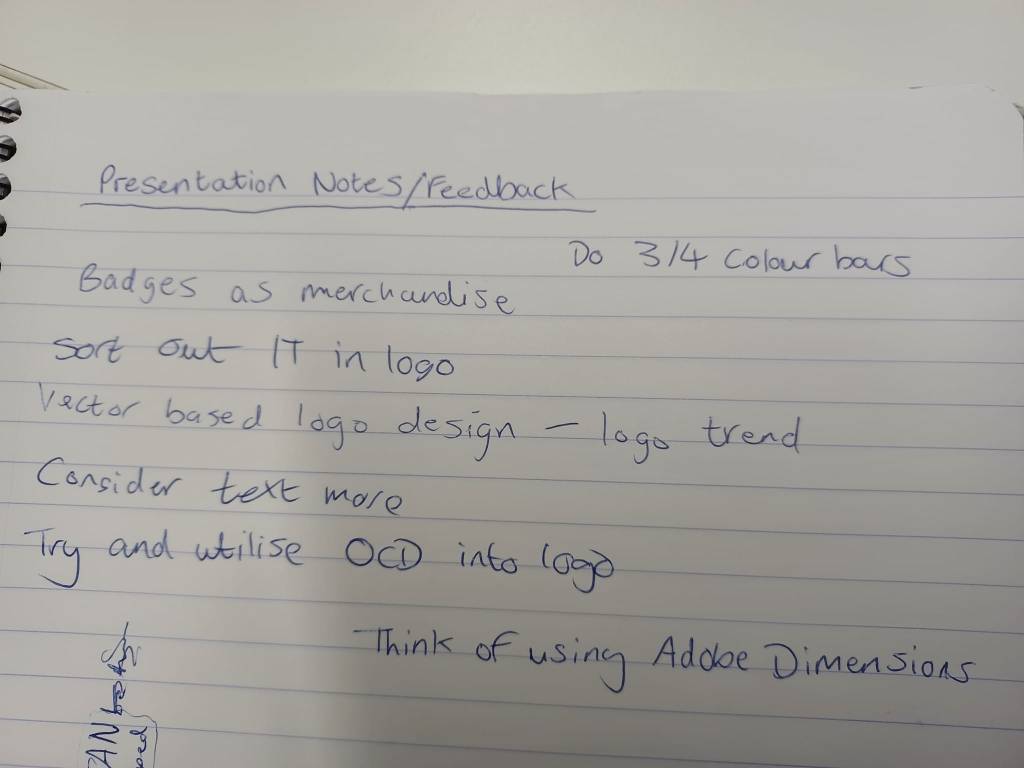 Presentation Notes/Feedback
Do 3/4 Colour bars
Badges as merchandise
Sort out IT in logo
Vector based logo design – logo trend
Consider text more
Try and utilise OCD into logo
Think of using Adobe Dimensions